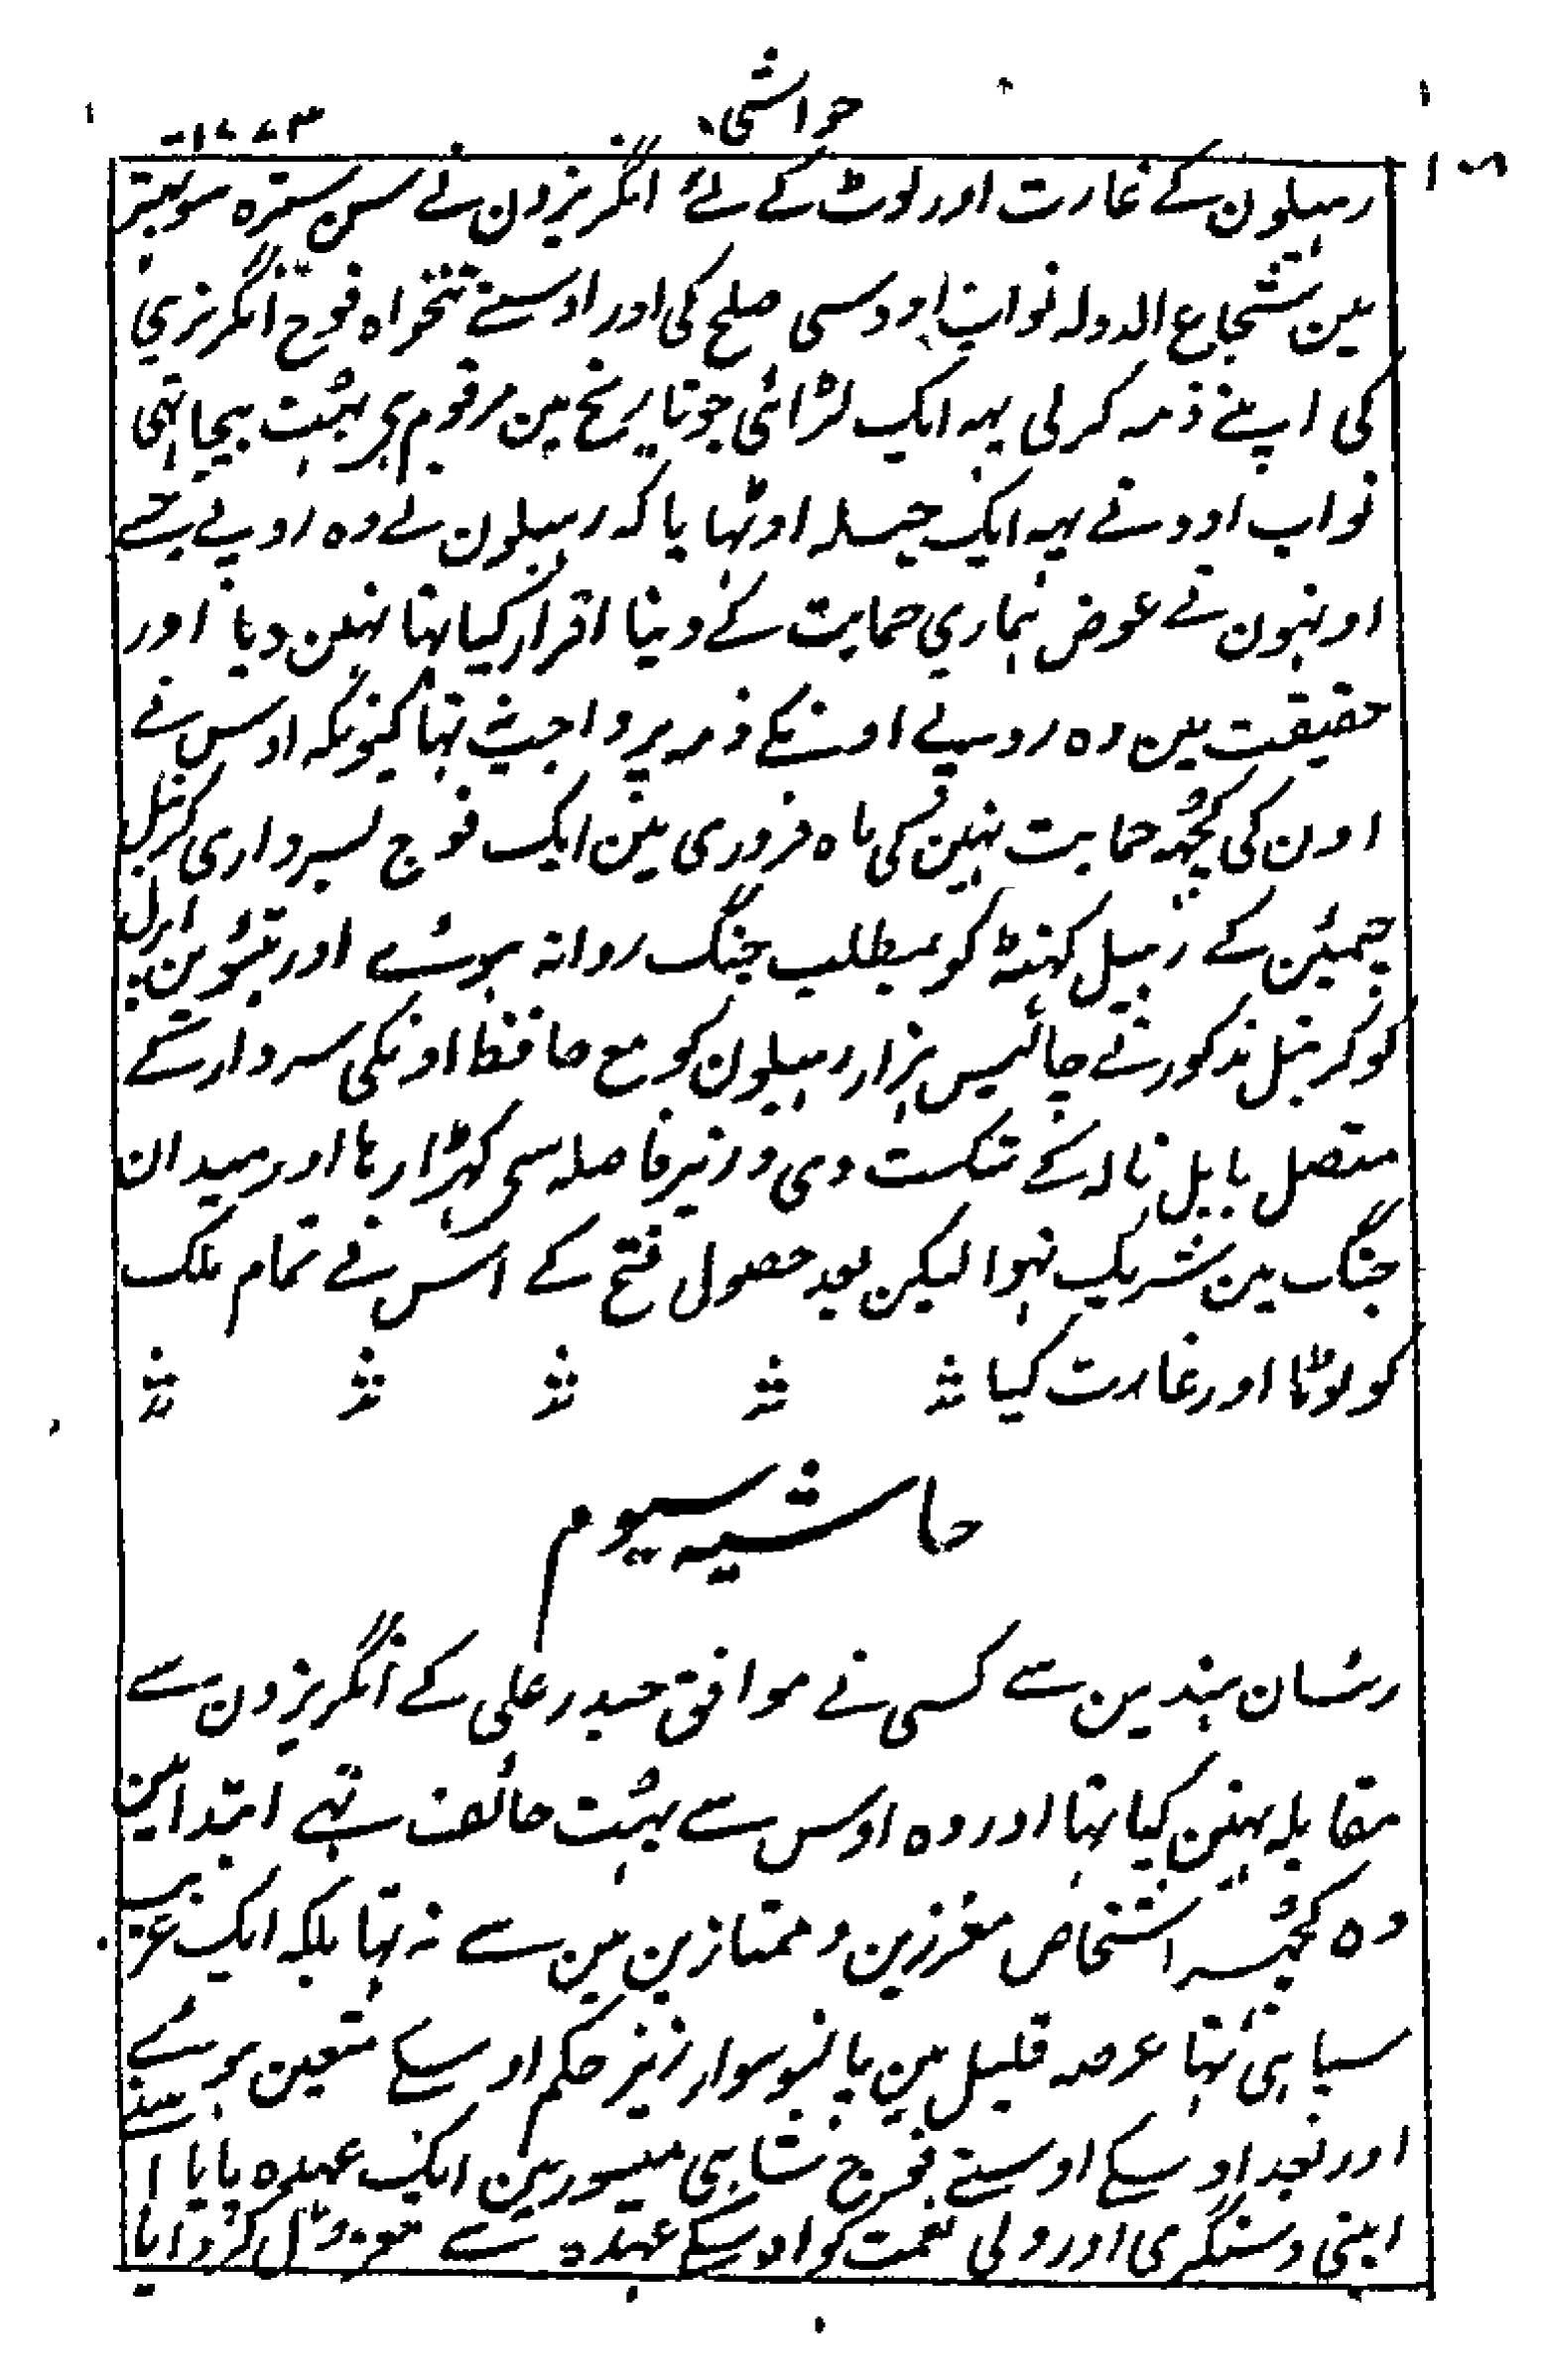 حواشی
۱۷۷۳
رہیلون کے غارت اور لوٹ کے لئے انگریزون نے سن سترہ سو تہتر
مین شجاع الدولہ نواب اودسی صلح کی اور اوسنے تنخواہ فوج انگریزی
کی اپنے ذمہ کر لی یہہ ایک لڑائی جو تاریخ مین مرقوم ہی بہت بیجا تہی
نواب اود نے یہہ ایک حیلہ اوٹہایا کہ رہیلون نے وہ روپے جسے
اونہون نے عوض ہماری حمایت کے دینا اقرار کیا تہا نہین دیا اور
حقیقت مین وہ روپیے اونکے ذمہ پر واجب نتہا کیونکہ اوس نے
اون کی کچہہ حمایت نہین کی ماہ فروری مین ایک فوج بسرداری کرنیل
چمپئن کے رہیل کہنڈ کو بمطلب جنگ روانہ ہوئے اور تیئوین اپرل
کو کرنیل مذکور نے چالیس ہزار رہیلون کو مع حافظ اونکی سردار کے
متصل بابل نالہ کے شکست دی وزیر فاصلہ سی کہڑا رہا اور میدان
جنگ مین شریک نہوا لیکن بعد حصول فتح کے اس نے تمام ملک
کو لوٹا اور غارت کیا
حاشیہ سیوم
رئسان ہند مین سے کسی نے موافق حیدر علی کے انگریزون سے
مقابلہ نہین کیا تہا اور وہ اوس سے بہت خائف تہے ابتدا مین
وہ کچہہ اشخاص معززین و ممتازین مین سے نہ تہا بلکہ ایک غریب
سپاہی تہا عرصہ قلیل مین پانسو سوار زیر حکم اوسکے متعین ہوئے
اور بعد اوسکے اوسنے فوج شاہی میسور مین ایک عہدہ پایا اوسنے
اپنی دستگری اور ولی نعمت کو اوسکے عہدہ سے معزول کروایا